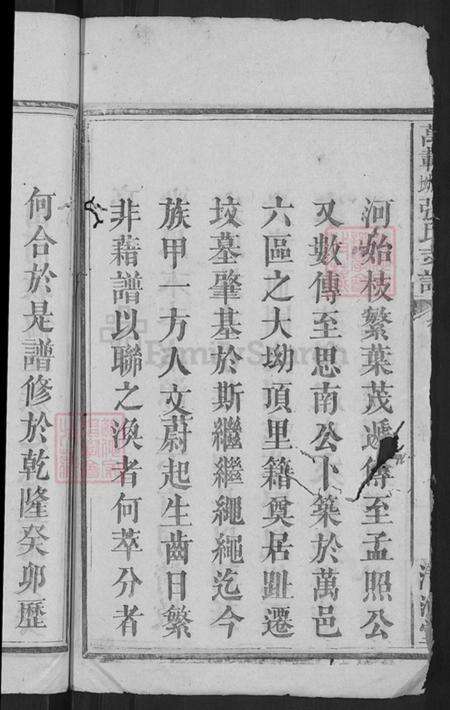 萬載張氏宗譜
河始枝繁葉茂遞傳至孟照公
又數傳至思南公卜築於萬邑
六區之大坳頂里籍奠居趾遷
坟墓肇基於斯繼繼繩繩迄今
族甲一方人文蔚起生齒日繁
非藉譜以聯之渙者何萃分者
何合於是譜修於乾隆癸卯歷
FamilySearch